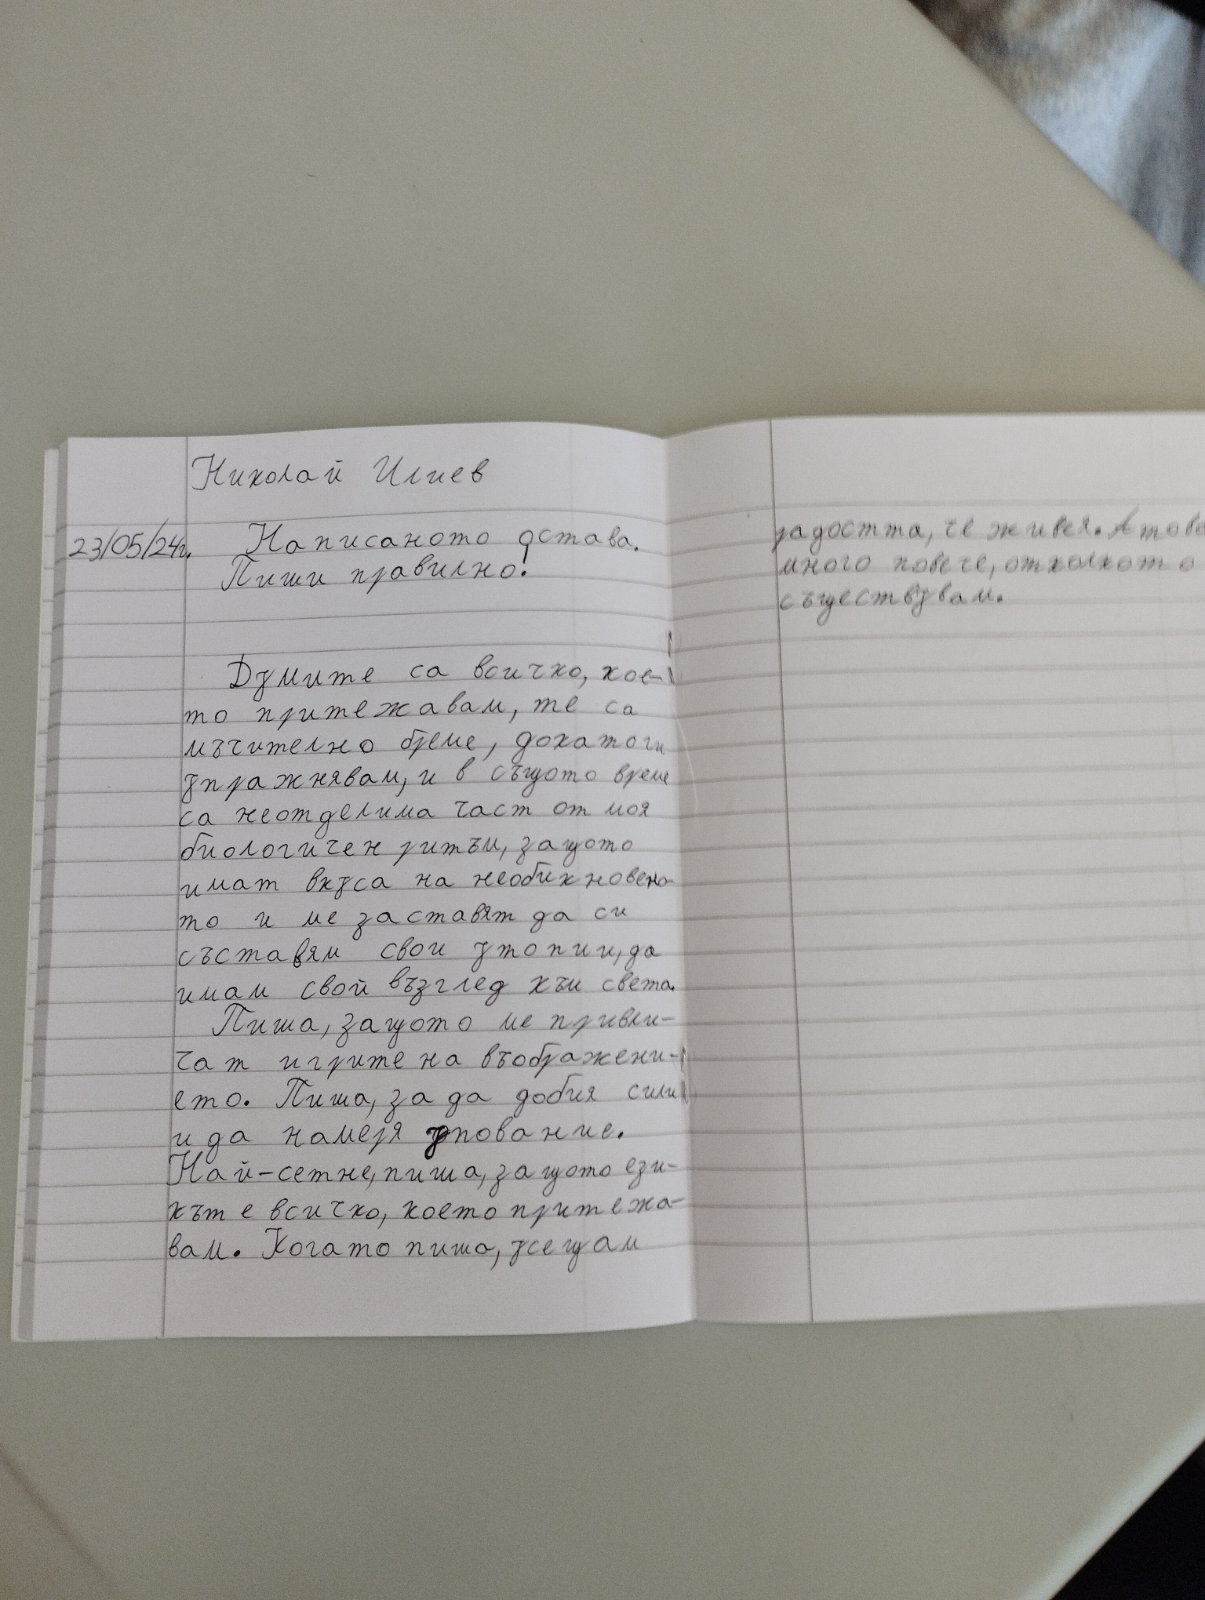 Николай Илиев
23/05/24г. Написаното остава.
Пиши правилно!
Думите са всичко, кое-
то притежавам, те са
мъчително бреме, докато ги
упражнявам, и в същото време
са неотделима част от моя
биологичен ритъм, защото
имат вкуса на необикновено-
то и ме заставят да си
съставям свои утопии, да
имам свой възглед към света.
Пиша, защото ме привли-
чат игрите на въображени-
ето. Пиша, за да добия сили
и да намеря упование.
Най-сетне, пиша, защото ези-
кът е всичко, което притежа-
вам. Когато пиша, усещам
радостта, че живея. А това
много повече, отколкото
съществувам.